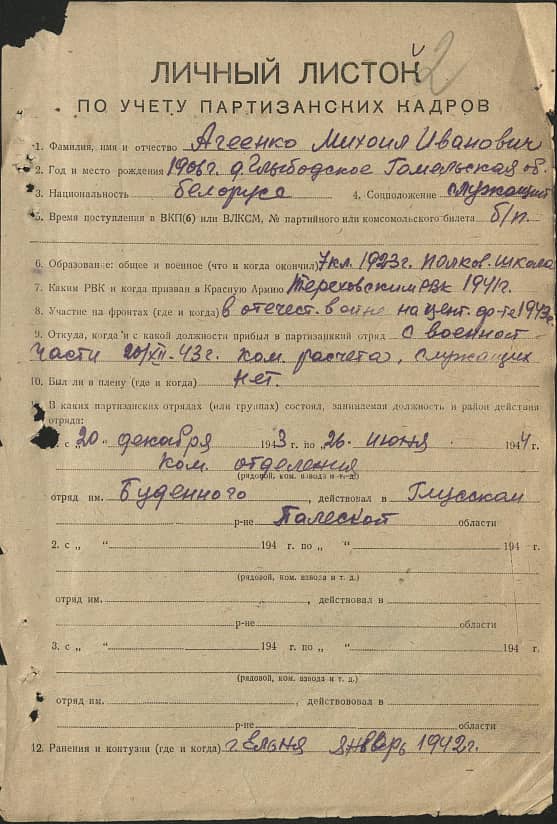 2
ЛИЧНЫЙ ЛИСТОК
ПО УЧЕТУ ПАРТИЗАНСКИХ КАДРОВ
1. Фамилия, имя и отчество Агеенко Михоил Иванович
2. Год и место рождения 1906 г. д. Глыбодское Гомельская об.
3. Национальность белорус 4. Соцположение служащий
5. Время поступления в ВКП(б) или ВЛКСМ, № партийного или комсомольского билета б/п.
6. Образование: общее и военное (что и когда окончил) 7 кл. 1923 г. полков. школа
7. Каким РВК и когда призван в Красную Армию Тереховским РВК 1941 г.
8. Участие на фронтах (где и когда) в отечест. войне на цент. фр-те 1943 г.
9. Откуда, когда и с какой должности прибыл в партизанкий отряд с военной
части 20/XII-43 г. ком. расчета, служащих
10. Был ли в плену (где и когда) нет.
В каких партизанских отрядах (или группах) состоял, занимаемая должность и район действия
отряда:
1. с „20 “ декабря 1943 г. по „26 “ июня 1944 г.
ком. отделения
(рядовой, ком. взвода и т. д.)
отряд им. Буденного, действовал в Глусском
р-не Палеской области
2. с „ “ 194 г. по „ “ 194 г.
(рядовой, ком. взвода и т. д.)
отряд им. , действовал в
р-не области
3. с „ “ 194 г. по „ “ 194 г.
(рядовой, ком. взвода и т. д.)
отряд им. , действововал в
р-не области
12. Ранения и контузии (где и когда) г Ельня январь 1942 г.